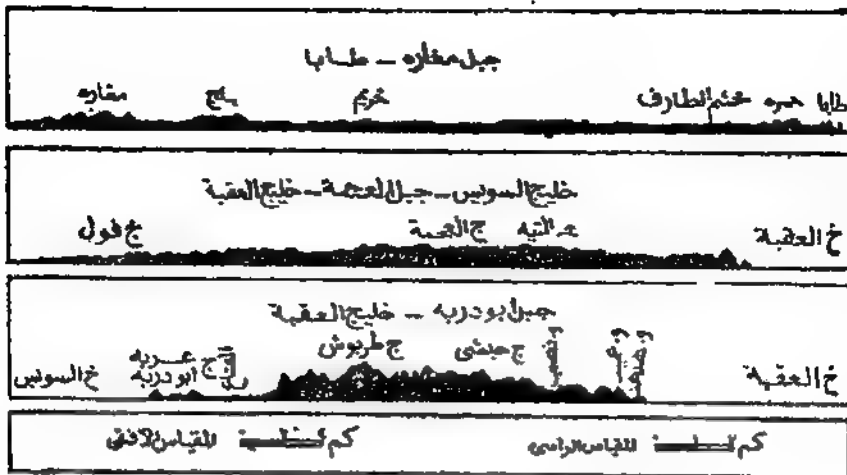 جبل مغاره - طابا
طابا حمره خشم الطارف خريم يلج مغاره
خليج السويس - جبل العجمة - خليج العقبة
خ العقبة ج التيه ج العجمة ج فول
جبل أبو دربه - خليج العقبة
خ العقبة ج حبشى ج طربوش ج عربه خ السويس
ج أبو دربه
المقياس الرأسى كم المقياس الأفقى كم